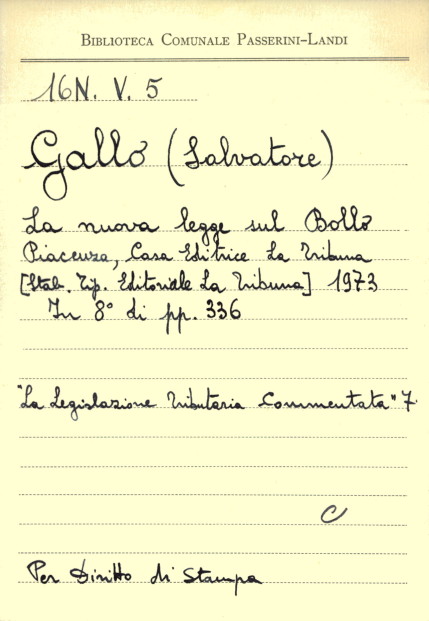 BIBLIOTECA COMUNALE PASSERINI-LANDI
16N. V. 5
Gallo (Salvatore)
La nuova legge sul Bollo
Piacenza, Casa Editrice La Tribuna
[Stab. Tip. Editoriale La Tribuna] 1973
In 8° di pp. 336
"La Legislazione Tributaria Commentata" 7.
C
Per Diritto di Stampa